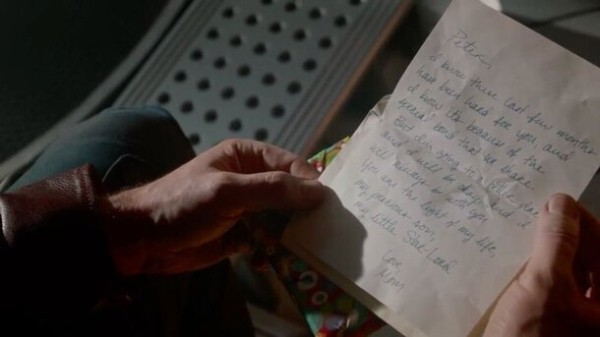 Peter,
I know these last few months
have been hard for you and
I know it's because of the
special bond that we share.
But I'm going to a
and I will be okay. And I
will always be with you.
You are the light of my life,
my precious son,
my little Star-Lord.
Love,
Mom